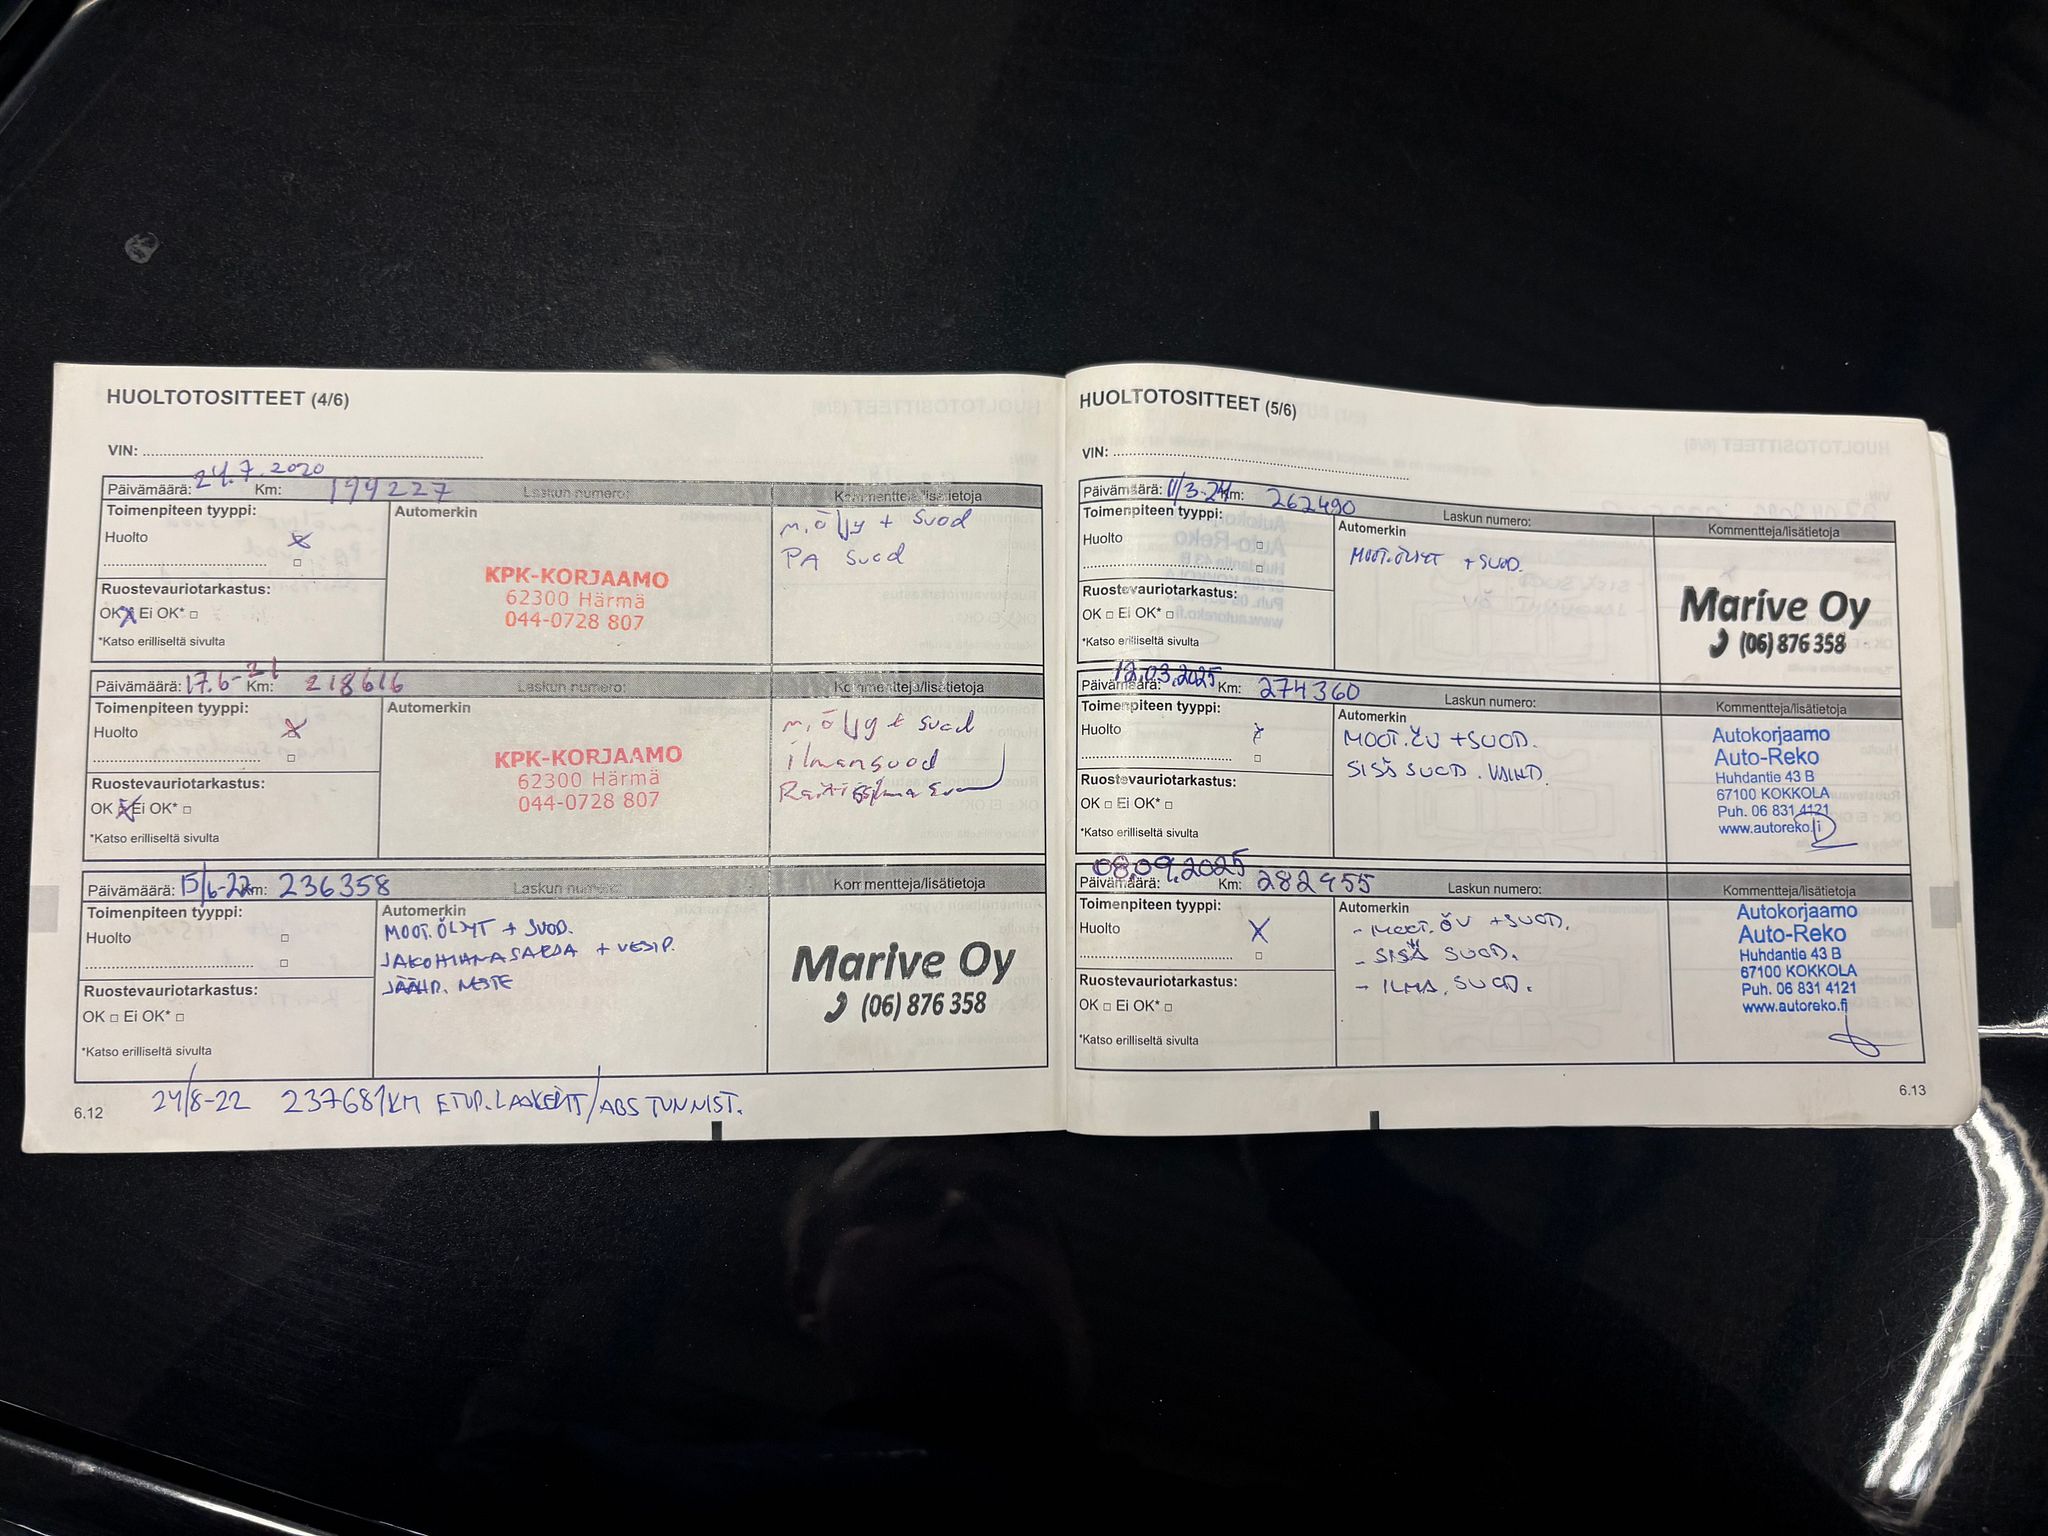 HUOLTOTOSITTEET (4/6)
VIN:
Päivämäärä: 24.7.2020 Km: 199227 Laskun numero: Kommentteja/lisätietoja
Toimenpiteen tyyppi: Automerkin
m, öljy + suod
Huolto
PA suod
KPK-KORJAAMO
62300 Härmä
044-0728 807
Ruostevauriotarkastus:
OK Ei OK*
*Katso erilliseltä sivulta
Päivämäärä: 17.6-21 Km: 218616 Laskun numero: Kommentteja/lisätietoja
Toimenpiteen tyyppi: Automerkin
m, öljy + suod
Huolto
ilmansuod
KPK-KORJAAMO
62300 Härmä
044-0728 807
Ruostevauriotarkastus:
OK Ei OK*
*Katso erilliseltä sivulta
Päivämäärä: 15/6-22 Km: 236358 Laskun numero: Kommentteja/lisätietoja
Toimenpiteen tyyppi: Automerkin
MOOT.ÖLJYT + SUOD.
Huolto
JAKOHIHNASARJA + VESIP.
JÄÄHD. NESTE
Marive Oy
(06) 876 358
Ruostevauriotarkastus:
OK Ei OK*
*Katso erilliseltä sivulta
24/8-22 237681KM ETUP.LAAKERIT/ABS TUNNIST.
6.12
HUOLTOTOSITTEET (5/6)
VIN:
Päivämäärä: 11/3-24 Km: 262490 Laskun numero: Kommentteja/lisätietoja
Toimenpiteen tyyppi: Automerkin
MOOT.ÖLJYT + SUOD.
Huolto
Marive Oy
(06) 876 358
Ruostevauriotarkastus:
OK Ei OK*
*Katso erilliseltä sivulta
Päivämäärä: 12.03.2025 Km: 274360 Laskun numero: Kommentteja/lisätietoja
Toimenpiteen tyyppi: Automerkin
MOOT.ÖV + SUOD.
Huolto
SISÄ SUOD. VAIHD.
Autokorjaamo
Auto-Reko
Huhdantie 43 B
67100 KOKKOLA
Puh. 06 831 4121
www.autoreko.fi
Ruostevauriotarkastus:
OK Ei OK*
*Katso erilliseltä sivulta
Päivämäärä: 08.09.2025 Km: 282955 Laskun numero: Kommentteja/lisätietoja
Toimenpiteen tyyppi: Automerkin
- MOOT. ÖV + SUOD.
Huolto
- SISÄ SUOD.
- ILMA. SUOD.
Autokorjaamo
Auto-Reko
Huhdantie 43 B
67100 KOKKOLA
Puh. 06 831 4121
www.autoreko.fi
Ruostevauriotarkastus:
OK Ei OK*
*Katso erilliseltä sivulta
6.13